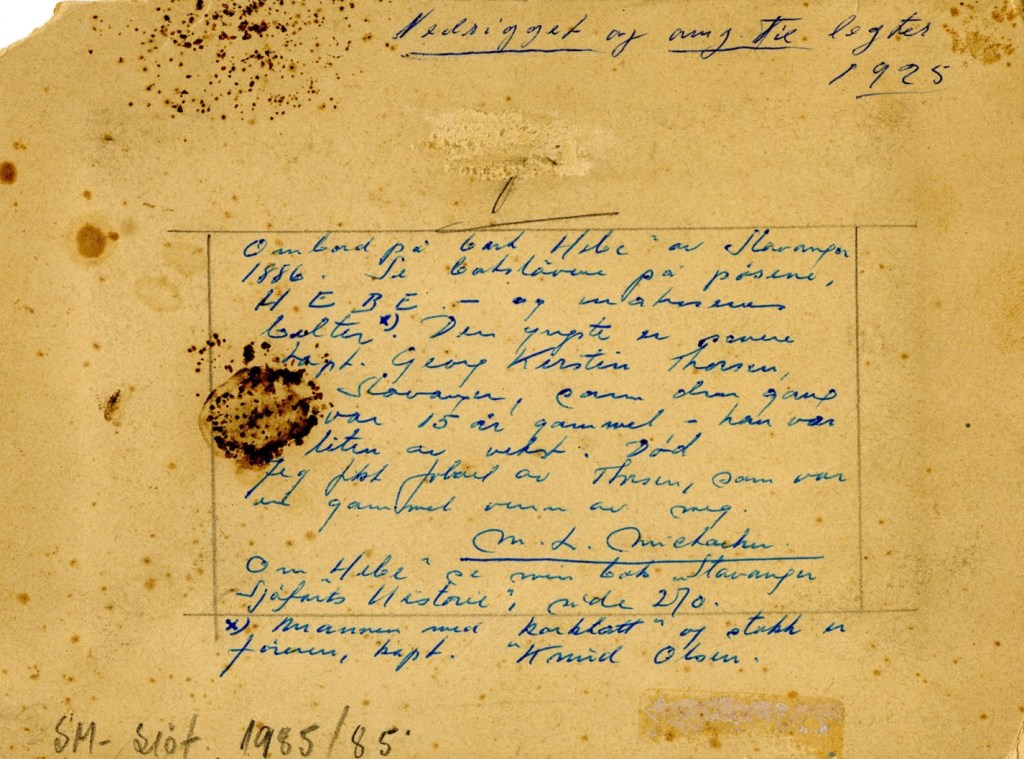 Nedrigget og omg. til legter
1925
Ombord på bark Hebe" av Stavanger
1886. Se bokstavene på pøsene,
H E B E. – og matrosenes
belter x). Den yngste er senere
kapt. Georg Kerstin Thorsen,
Stavanger, som den gang
var 15 år gammel – han var
liten av vekst. Død
Jeg fikk bildet av Thorsen, som var
en gammel venn av meg.
M. L. Michaelsen.
Om Hebe" se min bok „Stavanger
Sjøfarts Historie", side 270.
x) Mannen med "korkhatt" og stokk er
føreren, kapt. Knud Olsen.
SM- Sjöf. 1985/85.